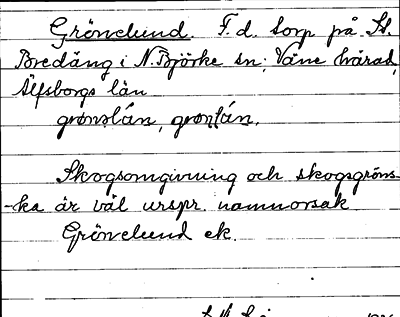 Grönelund. F.d. torp på St.
Bredäng i N. Björke sn; Väne härad,
Älfsborgs län
grønəlán, grønlán.
Skogsomgivning och skogsgröns-
-ka är väl urspr. namnorsak
Grönelund ek.